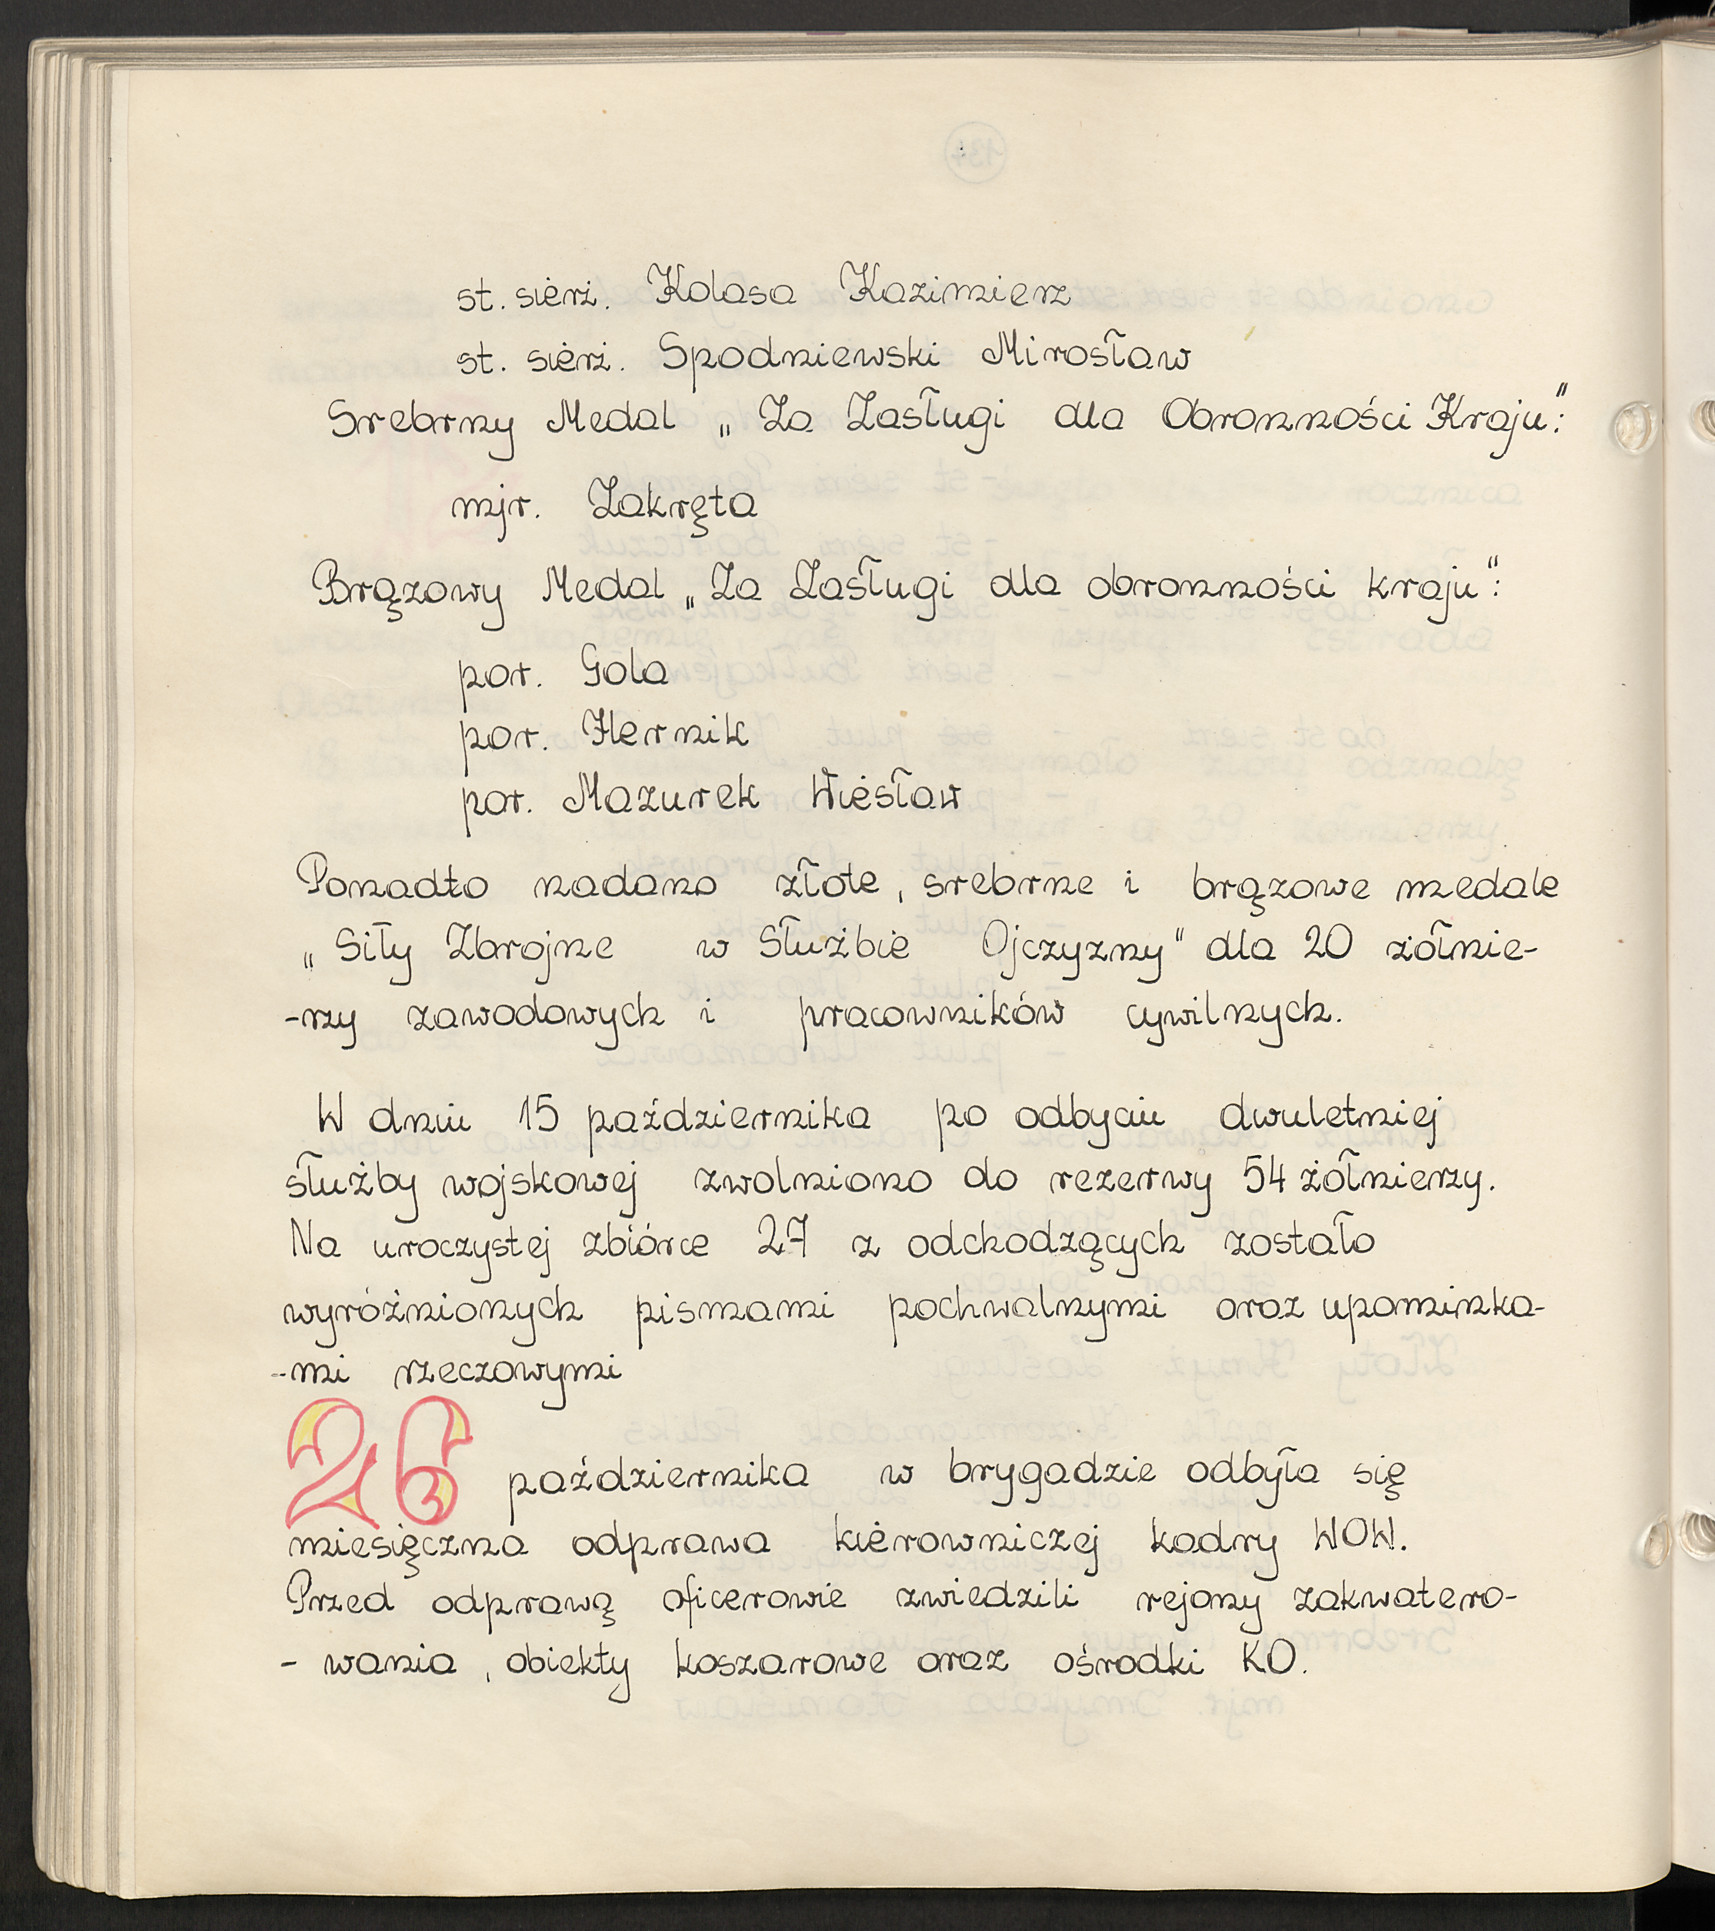 st. sierż. Kolasa Kazimierz
st. sierż. Spodniewski Mirosław
Srebrny Medal „Za Zasługi dla Obronności Kraju":
mjr. Zakręta
Brązowy Medal „Za Zasługi dla obronności kraju":
por. Gola
por. Hernik
por. Mazurek Wiesław
Ponadto nadano złote, srebrne i brązowe medale
„Siły Zbrojne w Służbie Ojczyzny" dla 20 żołnie-
-rzy zawodowych i pracowników cywilnych.
W dniu 15 października po odbyciu dwuletniej
służby wojskowej zwolniono do rezerwy 54 żołnierzy.
Na uroczystej zbiórce 27 z odchodzących zostało
wyróżnionych pismami pochwalnymi oraz upominka-
-mi rzeczowymi
26 października w brygadzie odbyła się
miesięczna odprawa kierowniczej kadry WOW.
Przed odprawą oficerowie zwiedzili rejony zakwatero-
- wania, obiekty koszarowe oraz ośrodki KO.